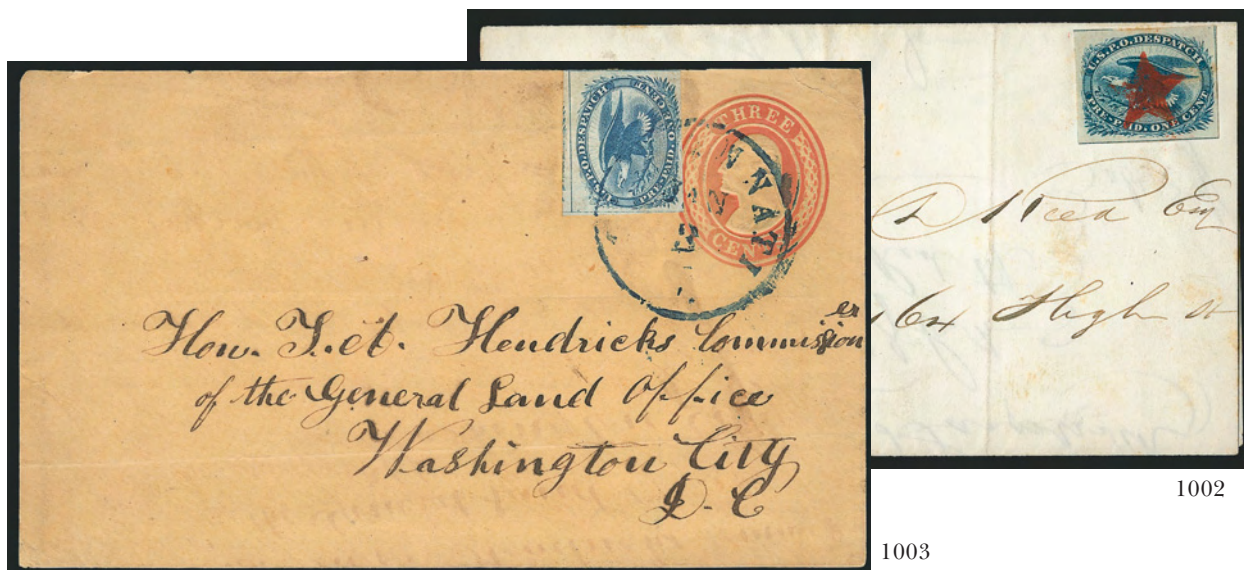 U.S.P.O. DESPATCH
PRE-PAID. ONE CENT.
THREE
CENTS
CINNATI
12
Hon. T. A. Hendricks Commission
er
of the General Land Office
Washington City
D. C
1003
U.S.P.O. DESPATCH
PRE-PAID. ONE CENT.
Reed Esq
64 High St
1002